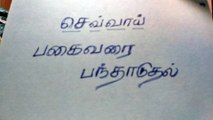 செவ்வாய்
பகைவரை
பந்தாடுதல்